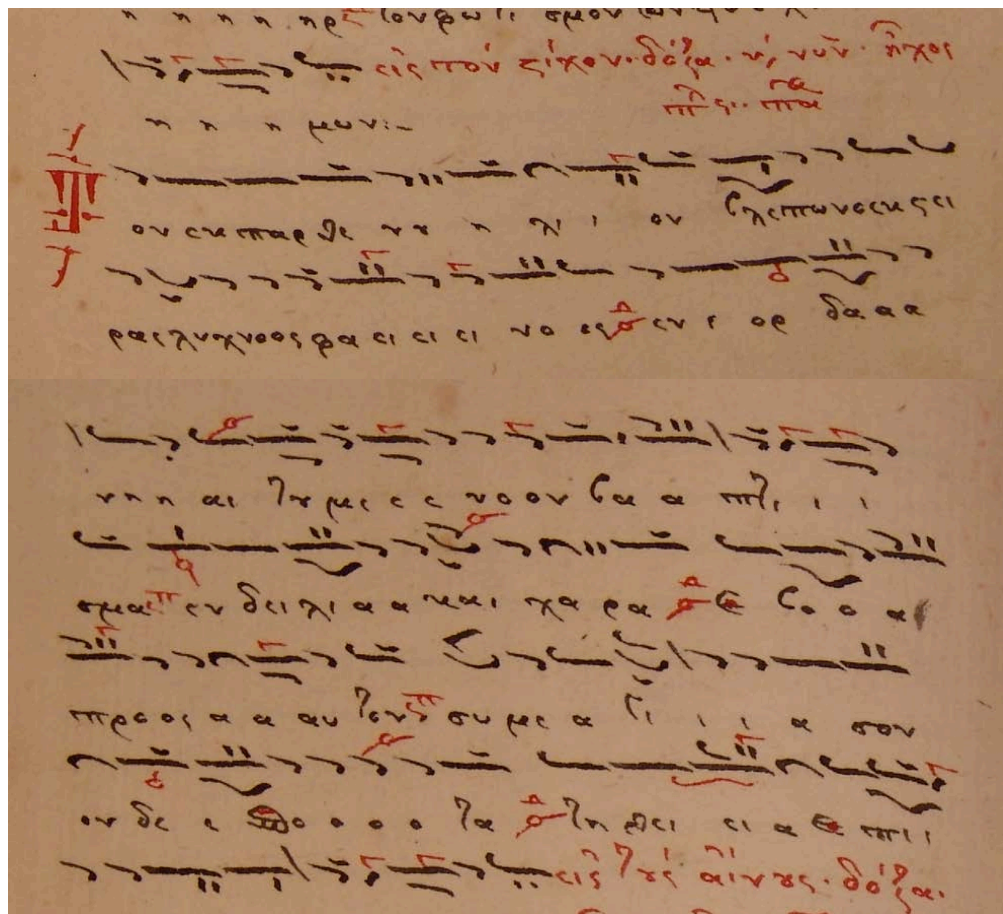 εἰς τὸν στίχον· δόξα· κ, νῦν· ἦχος
η η η μων:-
Τ ον εκ παρθε νου η λι ι ον βλεπωνοεκστει
ραςλυχνοοςφα ει ει ει νο ος εν ι ορ δα α α
νη η αι του με ε ε νο ον βα α πτι ι ι
σμα εν δει λι α α και χα ρα ε βο ο α
προος α α αυ τον συ με α γι ι ι α σον
ο ο ο ο τα τη θει ει α ε πι ι
εἰς τους αἴνους· δόξα·